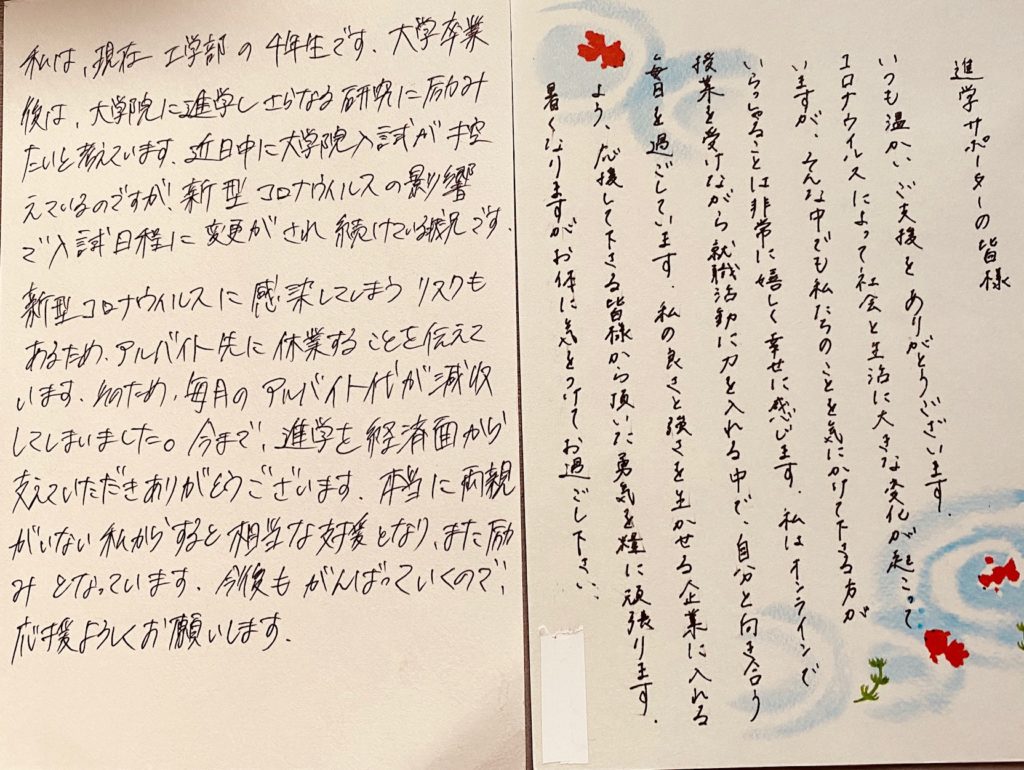 私は、現在 工学部の4年生です. 大学卒業
後は、大学院に進学しさらなる研究に励み
たいと考えています. 近日中に大学院入試が控
えているのですが、新型コロナウイルスの影響
で入試日程に変更がされ続けている状況です.
新型コロナウイルスに感染してしまうリスクも
あるため、アルバイト先に休業することを伝えて
います. そのため、毎月のアルバイト代が減収
してしまいました。今まで、進学を経済面から
支えていただきありがとうございます. 本当に両親
がいない私からすると相当な支援となり、また励
みとなっています. 今後もがんばっていくので、
応援よろしくお願いします.
進学サポーターの皆様
いつも温かいご支援をありがとうございます.
コロナウイルスによって社会と生活に大きな変化が起こって
いますが、そんな中でも私たちのことを気にかけて下さる方が
いらっしゃることは非常に嬉しく幸せに感じます. 私はオンラインで
授業を受けながら就職活動に力を入れる中で、自分と向き合う
毎日を過ごしています. 私の良さと強さを生かせる企業に入れる
よう、応援して下さる皆様から頂いた勇気を糧に頑張ります.
暑くなりますがお体に気をつけてお過ごし下さい.